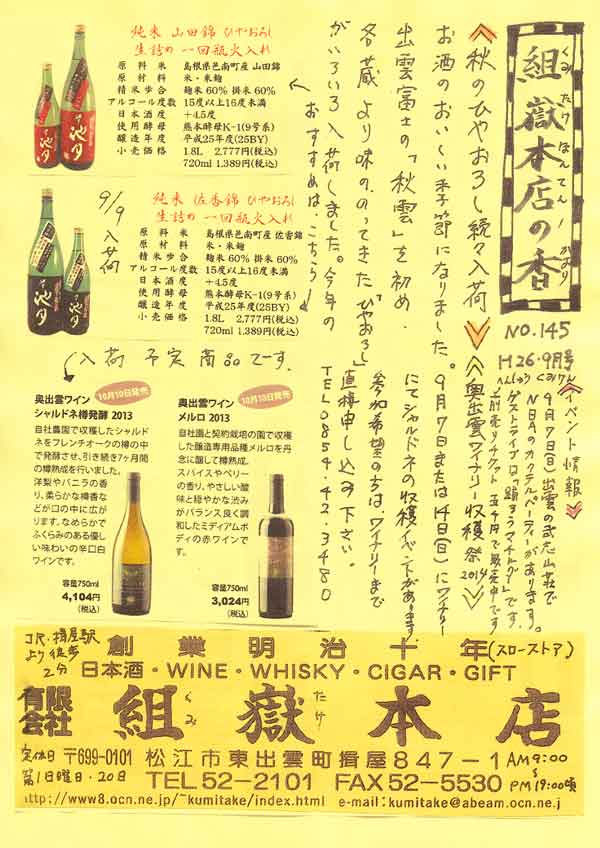 組嶽本店の香
くみ たけ ほんてん! かおり
NO.145
H26.9月号
へんしゅう くみけん
《秋のひやおろし続々入荷》
お酒のおいしい季節になりました。
出雲富士の「秋雲」を初め、
各蔵より味の、のってきた「ひやおろし」
がいろいろ入荷しました。今年の
おすすめは、こちら
《イベント情報》
9月7日(日)出雲の武志山荘で
NBAのカクテルパーティーがあります。
ゲストライブは「踊ろうマチルダ」です。
前売りチケット五千円で発売中です
《奥出雲ワイナリー収穫祭2014》
9月7日または14日(日)にワイナリー
にてシャルドネの収穫イベントがあります。
参加希望の方は、ワイナリーまで
直接申し込み下さい。
TEL0854.42.3480
純米 山田錦 ひやおろし
生詰め 一回瓶火入れ
原料米 島根県邑南町産 山田錦
原材料 米・米麹
精米歩合 麹米60% 掛米60%
アルコール度数 15度以上16度未満
日本酒度 +4.5度
使用酵母 熊本酵母K-1(9号系)
醸造年度 平成25年度(25BY)
小売価格 1.8L 2,777円(税込)
720ml 1,389円(税込)
9/9入荷
純米 佐香錦 ひやおろし
生詰め 一回瓶火入れ
原料米 島根県邑南町産 佐香錦
原材料 米・米麹
精米歩合 麹米60% 掛米60%
アルコール度数 15度以上16度未満
日本酒度 +4.5度
使用酵母 熊本酵母K-1(9号系)
醸造年度 平成25年度(25BY)
小売価格 1.8L 2,777円(税込)
720ml 1,389円(税込)
入荷予定商品です.
奥出雲ワイン 10月10日発売
シャルドネ樽発酵 2013
自社農園で収穫したシャルド
ネをフレンチオークの樽の中
で発酵させ、引き続き7ヶ月間
の樽熟成を行いました。
洋梨やバニラの香
り、柔らかな樽香な
どが口の中に広が
ります。なめらかで
ふくらみのある優し
い味わいの辛口白
ワインです。
容量750ml
4,104円
(税込)
奥出雲ワイン 10月10日発売
メルロ 2013
自社園と契約栽培の園で収穫
した醸造専用品種メルロを丹
念に醸して樽熟成。
スパイスやベリー
の香り、やさしい酸
味と穏やかな渋み
がバランス良く調
和したミディアムボ
ディの赤ワインで
す。
容量750ml
3,024円
(税込)
JR.揖屋駅
より徒歩
2分
創業明治十年(スローストア)
日本酒・WINE・WHISKY・CIGAR・GIFT
有限会社 組嶽本店
くみ たけ
定休日
第1日曜日・20日
〒699-0101 松江市東出雲町揖屋847-1
AM9:00
~
PM19:00頃
TEL52-2101 FAX52-5530
http://www8.ocn.ne.jp/~kumitake/index.html e-mail:kumitake@abeam.ocn.ne.j